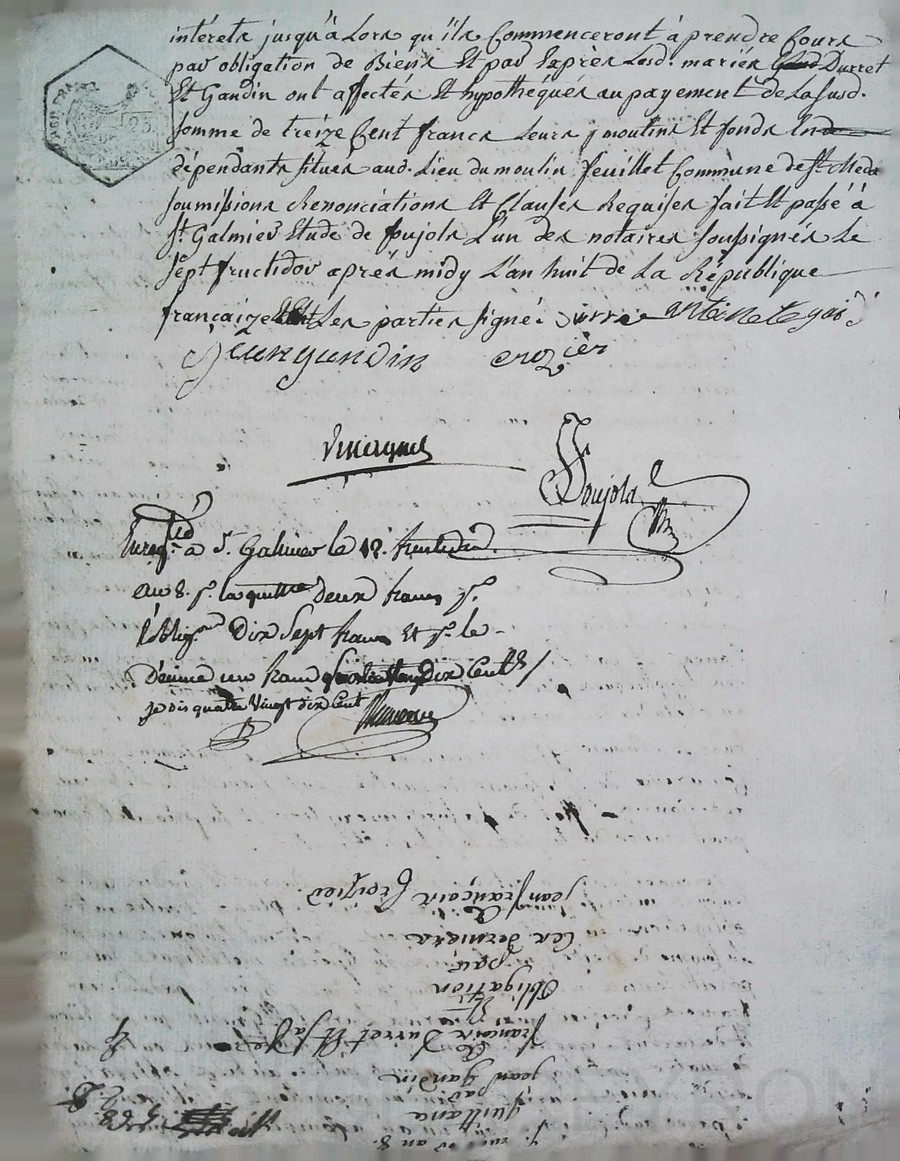 intérets jusqu'à Lors qu'ils Commenceront à prendre Cours
par obligation de Biens Et par Exprès Lesd. mariés Durret
Et Gandin ont affectés Et hypothéqués au payement de La susd.
somme de treize Cent francs Leurs moulins Et fonds
dépendants situés aud. Lieu du moulin feuillet Commune de St. Meda
soumissions Renonciations Et Clauses Requises fait Et passé à
St. Galmier Etude de poujols L'un des notaires soussignés Le
sept fructidor après midy L'an huit de La République
française Les parties signé
Jean gandin crozier
Poujols
Enregtré à St. Galmier le 12. fructidor
an 8. deux francs
l'oblig.on Dix Sept francs Et pr. le
Décime un franc Dix Cent
je dis quatre Vingt dix Cent
quittance
par
jean gandin
à
françois Durret Et sa fe
Et
Obligation
par
Ces derniers
à
jean françois Croizier